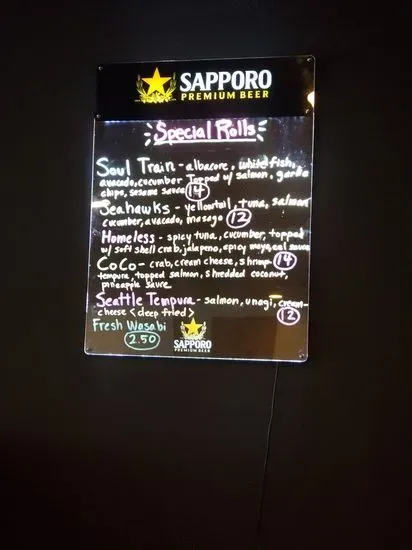 SAPPORO
PREMIUM BEER
Special Rolls
Soul Train - albacore, white fish,
avocado, cucumber Topped w/ salmon, garlic
chips, sesame sauce 14
Seahawks - yellowtail, tuna, salmon
cucumber, avocado, masago 12
Homeless - spicy tuna, cucumber, topped
w/ soft shell crab, jalapeno, spicy mayo, eel sauce
CoCo - crab, cream cheese, shrimp 14
tempura, topped salmon, shredded coconut,
pineapple sauce
Seattle Tempura - salmon, unagi, cream
cheese <deep fried> 12
Fresh Wasabi
2.50
SAPPORO
PREMIUM BEER